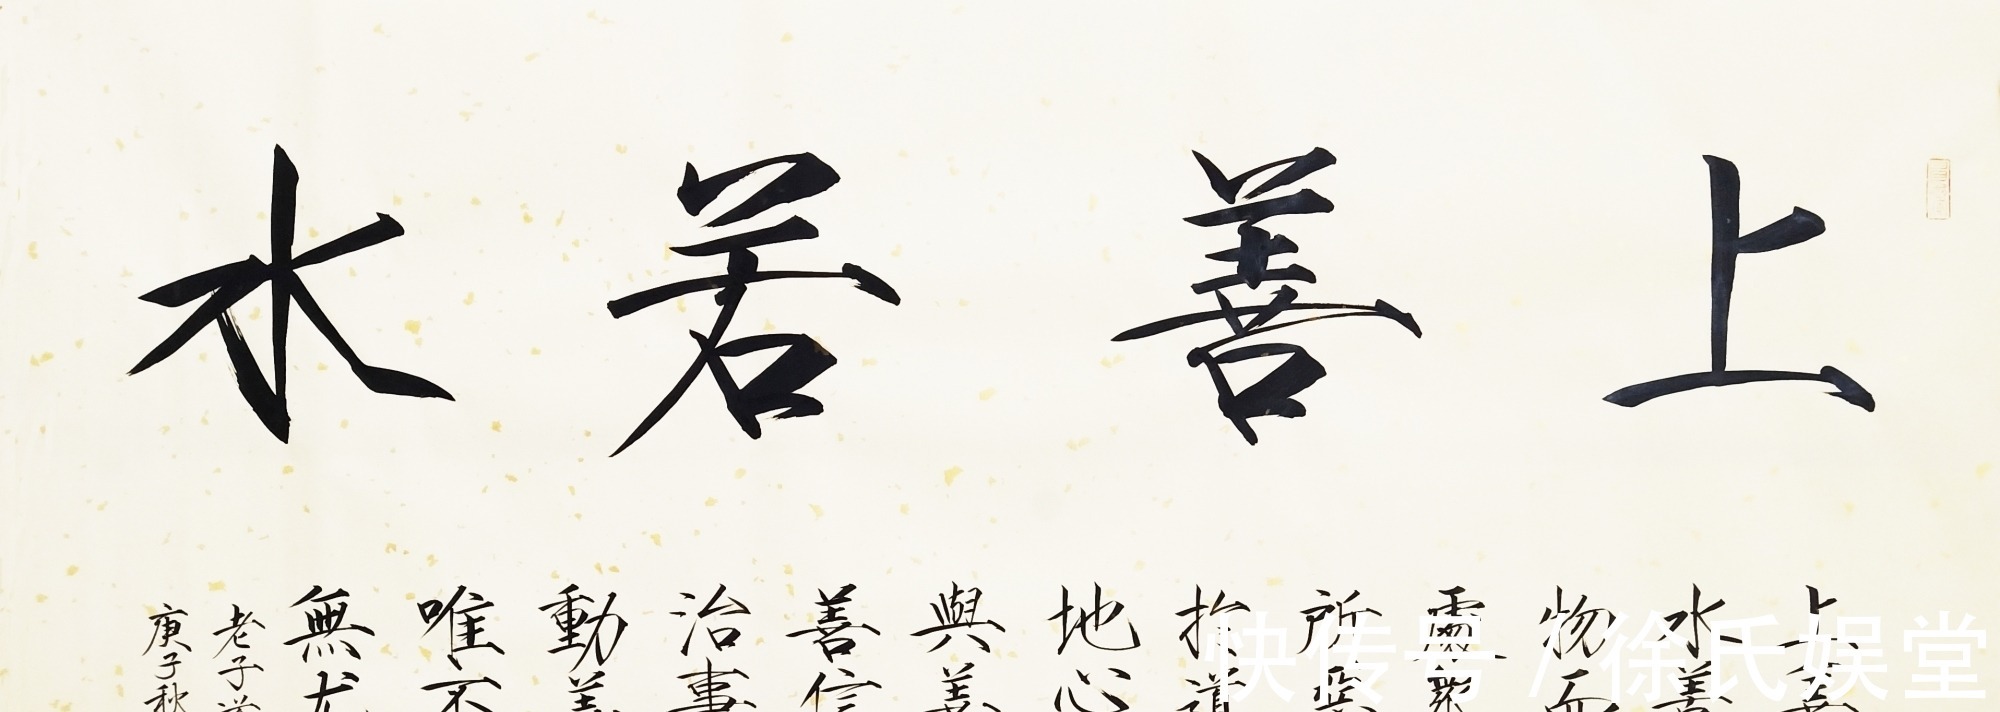 上善若水
上善
水善
物而
處眾
所惡
於道
地心
與善
善信
治事
動善
唯不
無尤
老子道
庚子秋
快传号 / 徐氏娱堂